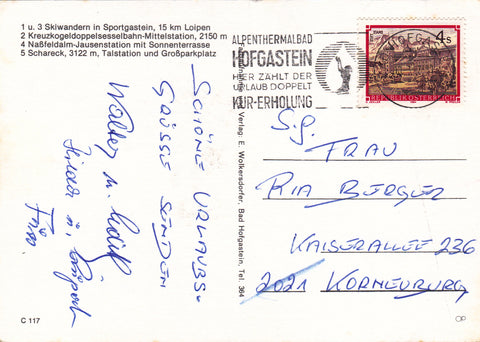 1 u. 3 Skiwandern in Sportgastein, 15 km Loipen
2 Kreuzkogeldoppelsesselbahn-Mittelstation, 2150 m
4 Naßfeldalm-Jausenstation mit Sonnenterrasse
5 Schareck, 3122 m, Talstation und Großparkplatz
ALPENTHERMALBAD
HOFGASTEIN
HIER ZÄHLT DER
URLAUB DOPPELT
KUR-ERHOLUNG
4 S
REPUBLIK ÖSTERREICH
SCHÖNE URLAUBS-
GRÜSSE SENDEN
Walter u.
Verlag: E. Wolkersdorfer, Bad Hofgastein, Tel. 364
S.g.
FRAU
RIA BERGER
KAISERALLEE 236
2021 KORNEUBURG
C 117